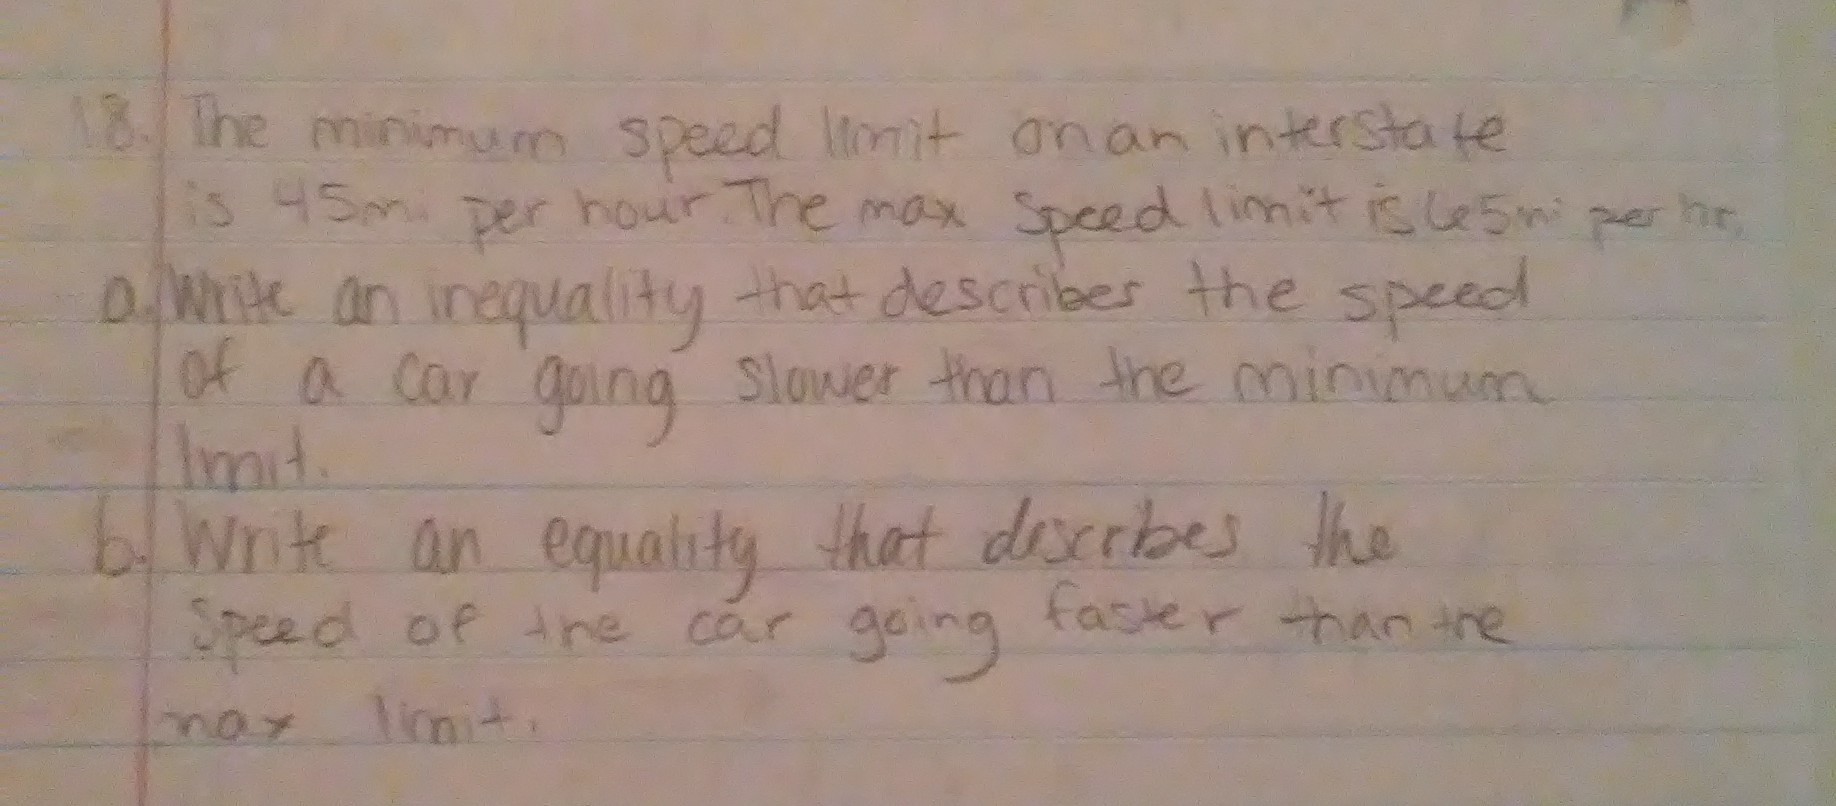 18. The minimum speed limit on an interstate
is 45mi per hour. The max speed limit is 65mi per hr.
a. Write an inequality that describes the speed
of a car going slower than the minimum
limit.
b. Write an equality that describes the
speed of the car going faster than the
max limit.